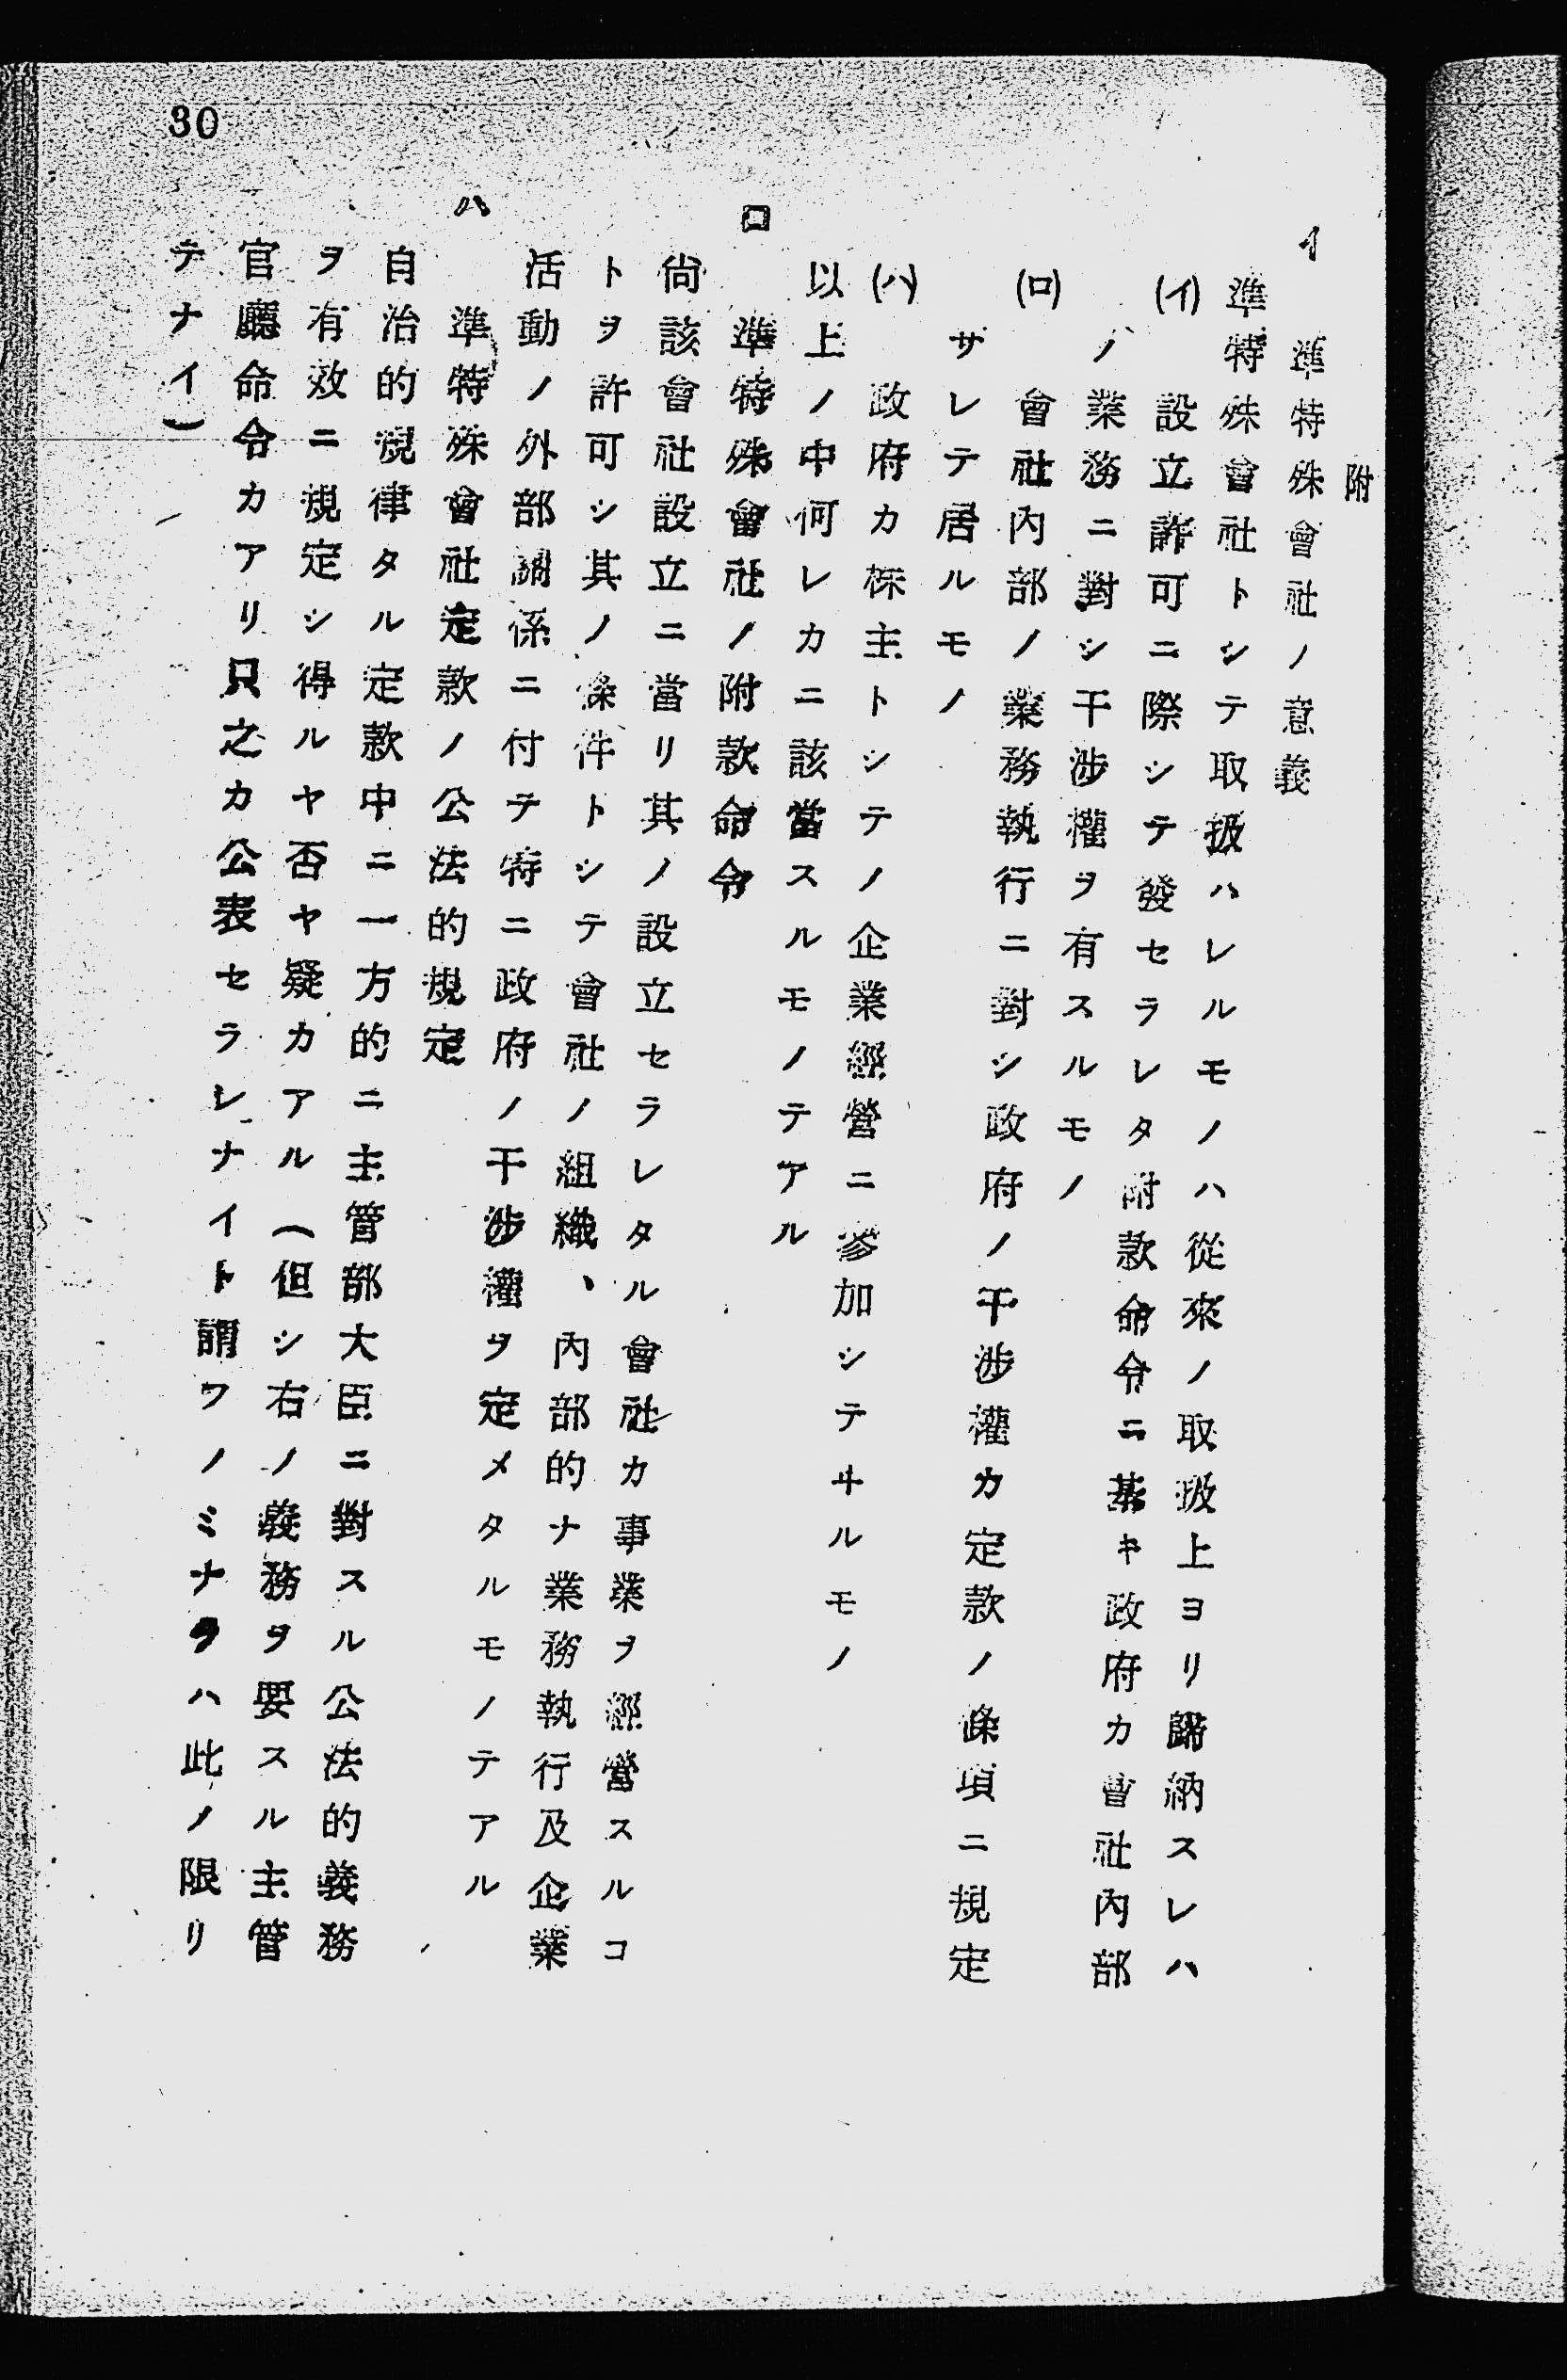 附
イ　準特殊會社ノ意義
準特殊會社トシテ取扱ハレルモノハ從來ノ取扱上ヨリ歸納スレハ
(イ)　設立許可ニ際シテ發セラレタ附款命令ニ基キ政府カ會社內部
ノ業務ニ對シ干涉權ヲ有スルモノ
(ロ)　會社內部ノ業務執行ニ對シ政府ノ干涉權カ定款ノ條項ニ規定
サレテ居ルモノ
(ハ)　政府カ株主トシテノ企業經營ニ參加シテヰルモノ
以上ノ中何レカニ該當スルモノテアル
ロ　準特殊會社ノ附款命令
尙該會社設立ニ當リ其ノ設立セラレタル會社カ事業ヲ經營スルコ
トヲ許可シ其ノ條件トシテ會社ノ組織、內部的ナ業務執行及企業
活動ノ外部關係ニ付テ特ニ政府ノ干涉權ヲ定メタルモノテアル
ハ　準特殊會社定款ノ公法的規定
自治的規律タル定款中ニ一方的ニ主管部大臣ニ對スル公法的義務
ヲ有效ニ規定シ得ルヤ否ヤ疑カアル（但シ右ノ義務ヲ要スル主管
官廳命令カアリ只之カ公表セラレナイト謂フノミナラハ此ノ限リ
テナイ）
30